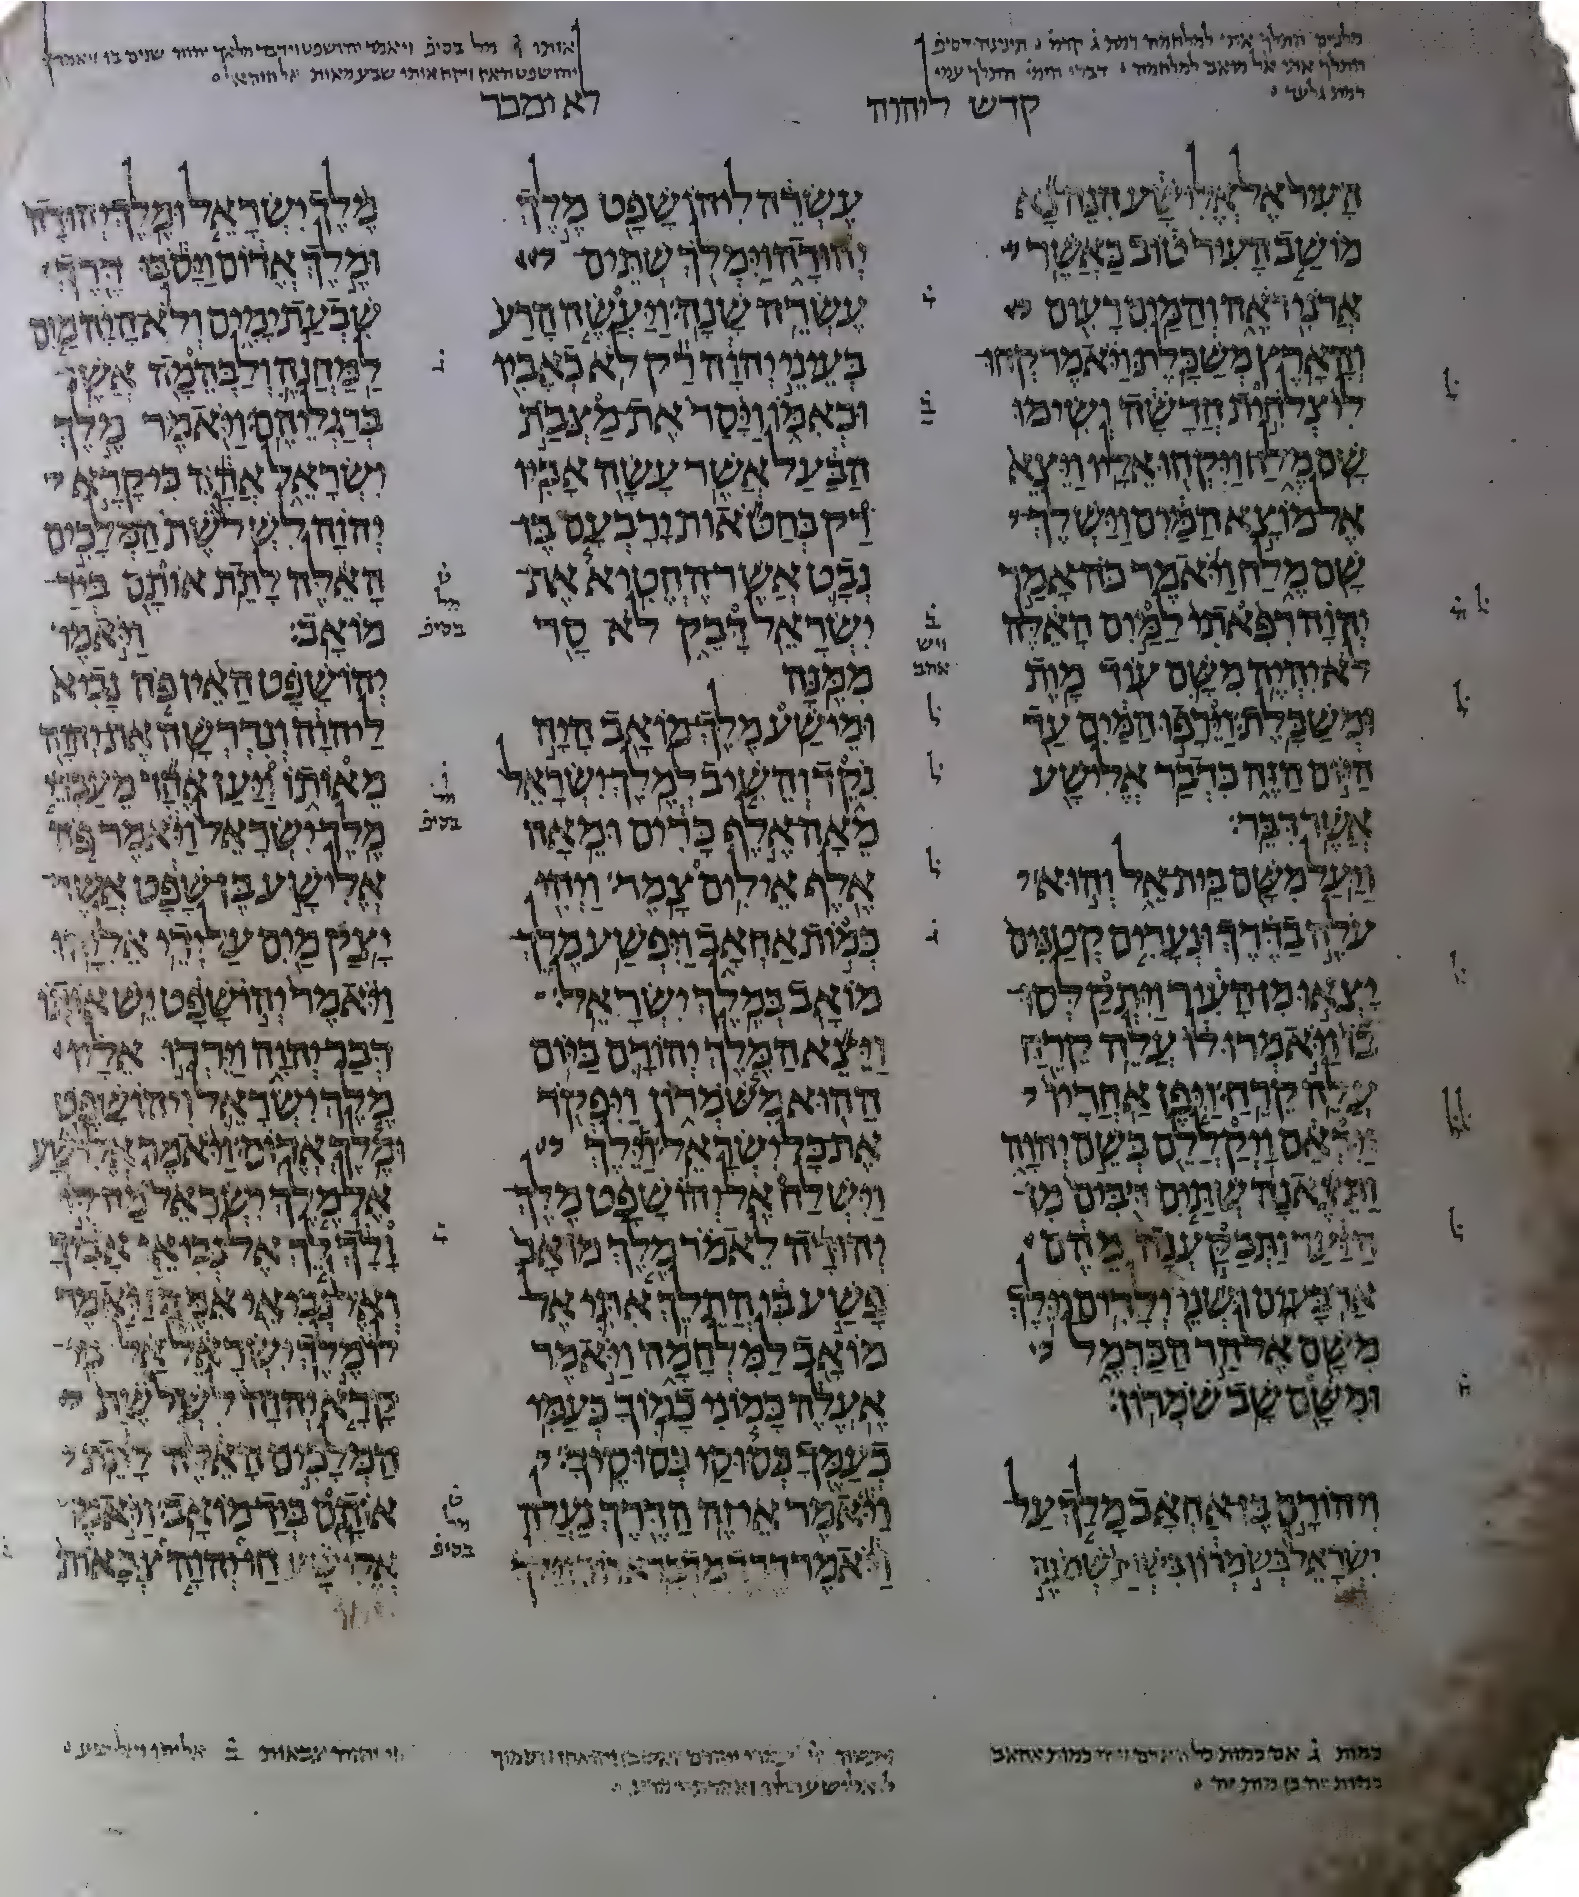 מלכים התלך אתי למלחמה רמת ג קדמ תינינה דסיפ
התלך אתי אל מואב למלחמה דברי הימי התלך עמי
רמת גלעד
אותו ג מל בסיפ ויאמר יהושפט וידבר מלאך יהוה
יהושפט האין ויקח אותו שבע מאות
קדש ליהוה
לא ימכר
העיר אל אלישע הנה נא
מושב העיר טוב כאשר
אדני ראה והמים רעים
והארץ משכלת ויאמר קחו
לי צלחית חדשה ושימו
שם מלח ויקחו אליו ויצא
אל מוצא המים וישלך
שם מלח ויאמר כה אמר
יהוה רפאתי למים האלה
לא יהיה משם עוד מות
ומשכלת וירפו המים עד
היום הזה כדבר אלישע
אשר דבר
ויעל משם בית אל והוא
עלה בדרך ונערים קטנים
יצאו מן העיר ויתקלסו
בו ויאמרו לו עלה קרח
עלה קרח ויפן אחריו
ויראם ויקללם בשם יהוה
ותצאנה שתים דבים מן
היער ותבקענה מהם
ארבעים ושני ילדים וילך
משם אל הר הכרמל
ומשם שב שמרון
ויהורם בן אחאב מלך על
ישראל בשמרון בשנת שמנה
עשרה ליהושפט מלך
יהודה וימלך שתים
עשרה שנה ויעשה הרע
בעיני יהוה רק לא כאביו
וכאמו ויסר את מצבת
הבעל אשר עשה אביו
רק בחטאות ירבעם בן
נבט אשר החטיא את
ישראל דבק לא סר
ממנה
ומישע מלך מואב היה
נקד והשיב למלך ישראל
מאה אלף כרים ומאה
אלף אילים צמר ויהי
כמות אחאב ויפשע מלך
מואב במלך ישראל
ויצא המלך יהורם ביום
ההוא משמרון ויפקד
את כל ישראל וילך
וישלח אל יהושפט מלך
יהודה לאמר מלך מואב
פשע בי התלך אתי אל
מואב למלחמה ויאמר
אעלה כמוני כמוך כעמי
כעמך כסוסי כסוסיך
ויאמר אי זה הדרך נעלה
ויאמר דרך מדבר אדום וילך
מלך ישראל ומלך יהודה
ומלך אדום ויסבו דרך
שבעת ימים ולא היה מים
למחנה ולבהמה אשר
ברגליהם ויאמר מלך
ישראל אהה כי קרא
יהוה לשלשת המלכים
האלה לתת אותם ביד
מואב ויאמר
יהושפט האין פה נביא
ליהוה ונדרשה את יהוה
מאותו ויען אחד מעבדי
מלך ישראל ויאמר פה
אלישע בן שפט אשר
יצק מים על ידי אליהו
ויאמר יהושפט יש אותו
דבר יהוה וירדו אליו
מלך ישראל ויהושפט
ומלך אדום ויאמר אלישע
אל מלך ישראל מה לי
ולך לך אל נביאי אביך
ואל נביאי אמך ויאמר
לו מלך ישראל אל כי
קרא יהוה לשלשת
המלכים האלה לתת
אותם ביד מואב ויאמר
אלישע חי יהוה צבאות
כמות ג אם כמות כל האדם ויהי כמות אחאב
חי יהוה צבאות ב אליהו ואלישע